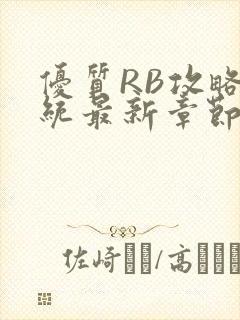 優質RB攻略
統最新章節
佐崎/高